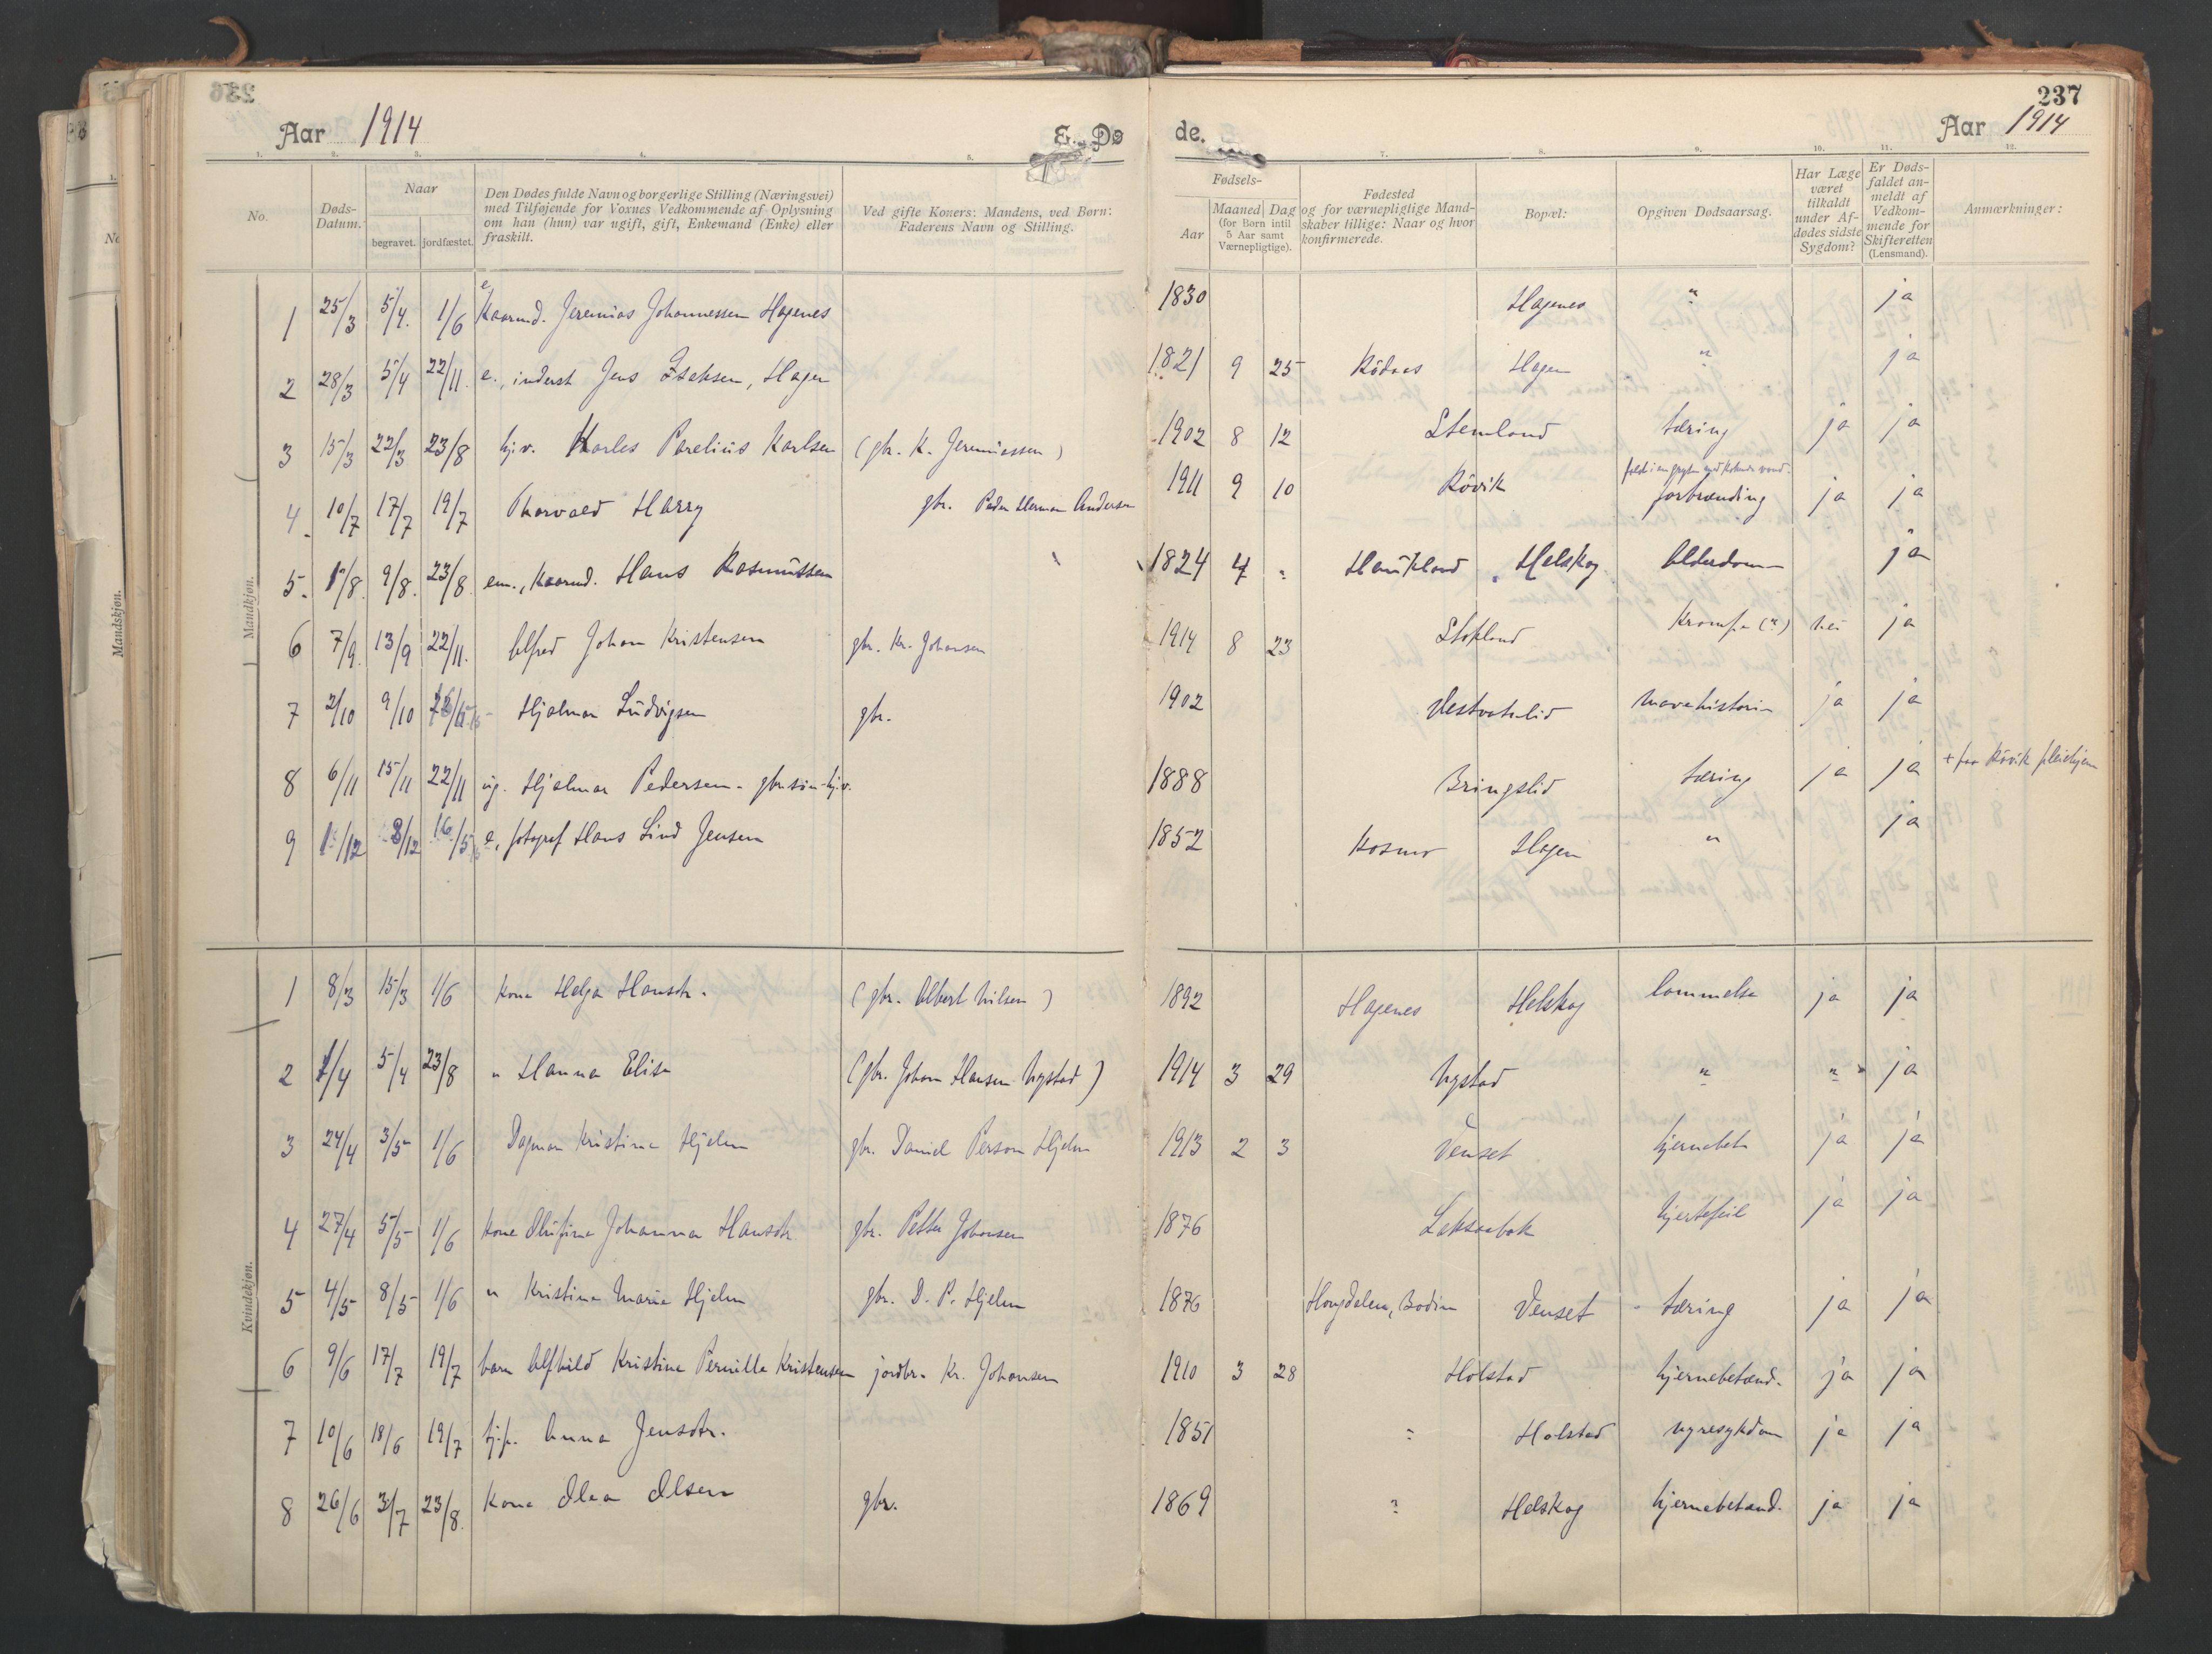 236
Aar 1914 E. Dø
1. 2. 3. 4. 5.
No. Døds-Datum. Naar begravet. jordfæstet. Den Dødes fulde Navn og borgerlige Stilling (Næringsvei) med Tilføjende for Voxnes Vedkommende af Oplysning om han (hun) var ugift, gift, Enkemand (Enke) eller fraskilt. Ved gifte Koner: Mandens, ved Børn: Faderens Navn og Stilling.
Mandkjøn.
1 25/3 5/4. 1/6 e. Kaarmd. Jeremias Johannessen Hagenes
2 28/3 5/4 22/11. e., inderst Jens Isaksen, Hagen
3 15/3 22/3 23/8 hjv. Karles Parelius Karlsen (gbr. K. Jeremiassen)
4. 10/7 17/7 19/7 Thorvald Harry gbr. Peder Herman Andersen
5. 1/8. 9/8. 23/8. em., kaarmd. Hans Rasmussen
6 7/9. 13/9 22/11. Alfred Johan Kristensen gbr. Kr. Johansen
7 2/10 9/10 Hjalmar Ludvigsen gbr.
8 6/11 15/11 22/11 ug. Hjalmar Pedersen - gbr.søn - hjv.
9 1/12 8/12 16/5 e, fotograf Hans Lind Jensen
Kvindekjøn.
1 8/3 15/3 1/6 Kone Helga Hansdtr. (gbr. Albert Nilsen)
2 1/4 5/4 23/8 " Hanna Elise (gbr. Johan Hansen Nystad)
3 24/4 3/5 1/6 Dagmar Kristine Hjelm gbr. Daniel Person Hjelm
4 27/4 5/5 1/6 Kone Olufine Johanna Hansdtr. gbr. Petter Johansen
5 4/5 8/5 1/6 " Kristine Marie Hjelm gbr. D. P. Hjelm
6 9/6 17/7 19/7 barn Alfhild Kristine Pernille Kristensen jordbr. Kr. Johansen
7 10/6 18/6 19/7 Anna Jensdtr.
8 26/6 3/7 23/8. Kone Olea Olsen gbr.
237
de. Aar 1914
7. 8. 9. 10. 11. 12.
Fødsels- Aar Maaned Dag (for Børn intil 5 Aar samt Værnepligtige). Fødested og for værnepligtige Mandskaber tillige: Naar og hvor konfirmerede. Bopæl: Opgiven Dødsaarsag. Har Læge været tilkaldt under Afdødes sidste Sygdom? Er Dødsfaldet anmeldt af Vedkommende for Skifteretten (Lensmand). Anmærkninger:
1830 Hagenes " ja
1821 9 25 Rödaas Hagen " ja
1902 8 12 Stemland tæring ja ja
1911 9 10 Rövik forbrænding ja ja
1824 4 " Haukland Helskog Alderdom ja
1914 8 23 Stokland Krampe (?) nei ja
1902 Vestvatnlid ja ja
1888 Bringslid tæring ja ja + paa Rövik pleiehjem
1852 Kosmo Hagen " ja
1892 Hagenes Helskog lammelse ja ja
1914 3 29 Nystad " " ja
1913 2 3 Venset hjernebet. ja ja
1876 Laksaabak hjertefeil ja ja
1876 Hougdalen, Bodin Venset tæring ja ja
1910 3 28 Holstad hjernebetænd. ja ja
1851 " Holstad nyresykdom ja ja
1869 ? Helskog hjernebetænd. ja ja
Mandskjøn.